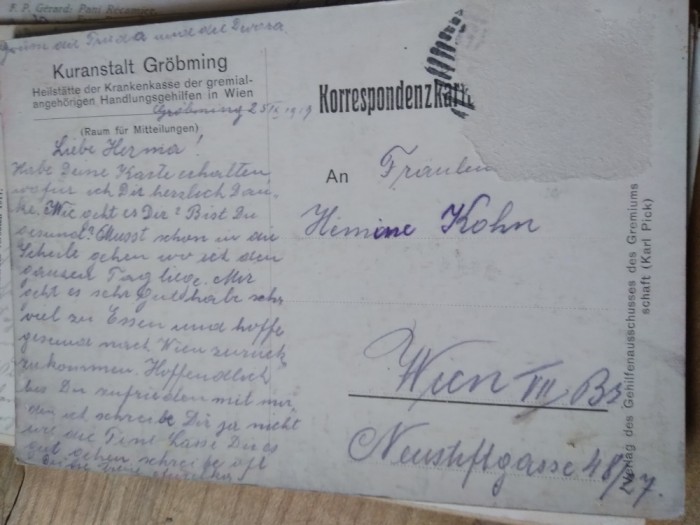 F. P. Gerard: Pani Récamier
die Truda und die Dvora
Kuranstalt Gröbming
Heilstätte der Krankenkasse der gremial-
angehörigen Handlungsgehilfen in Wien
Gröbming 25 IX 1919
(Raum für Mitteilungen)
Liebe Herma!
Habe Deine Karte erhalten
wofür ich Dir herzlich Dan-
ke. Wie geht es Dir? Bist Du
gesund? Musst schon in die
Schule gehen wo ich den
ganzen Tag liege. Mir
geht es sehr gut habe sehr
viel zu Essen und hoffe
gesund nach Wien zurück
zukommen. Hoffendlich
bis Du zufrieden mit mir,
den ich schreibe Dir ja nicht
wie die Tini. Lasse Dir es
gut gehen schreibe oft
Deine
Korrespondenzkart
An
Fräulein
Hermine Kohn
Wien VII Bz
Neustiftgasse 48/27.
Verlag des Gehilfenausschusses des Gremiums
schaft (Karl Pick)